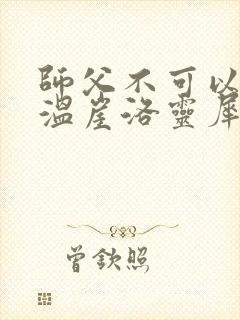 師父不可以
溫崖洛靈犀
曾欽照